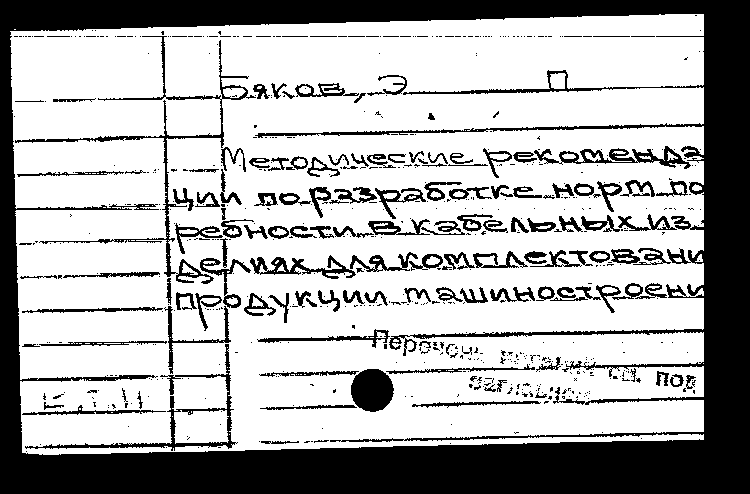 Бяков, Э П
Методические рекоменда
ции по разработке норм по
ребности в кабельных из
делиях для комплектовани
продукции машиностроени
Перечень изданий см. под
заглавием